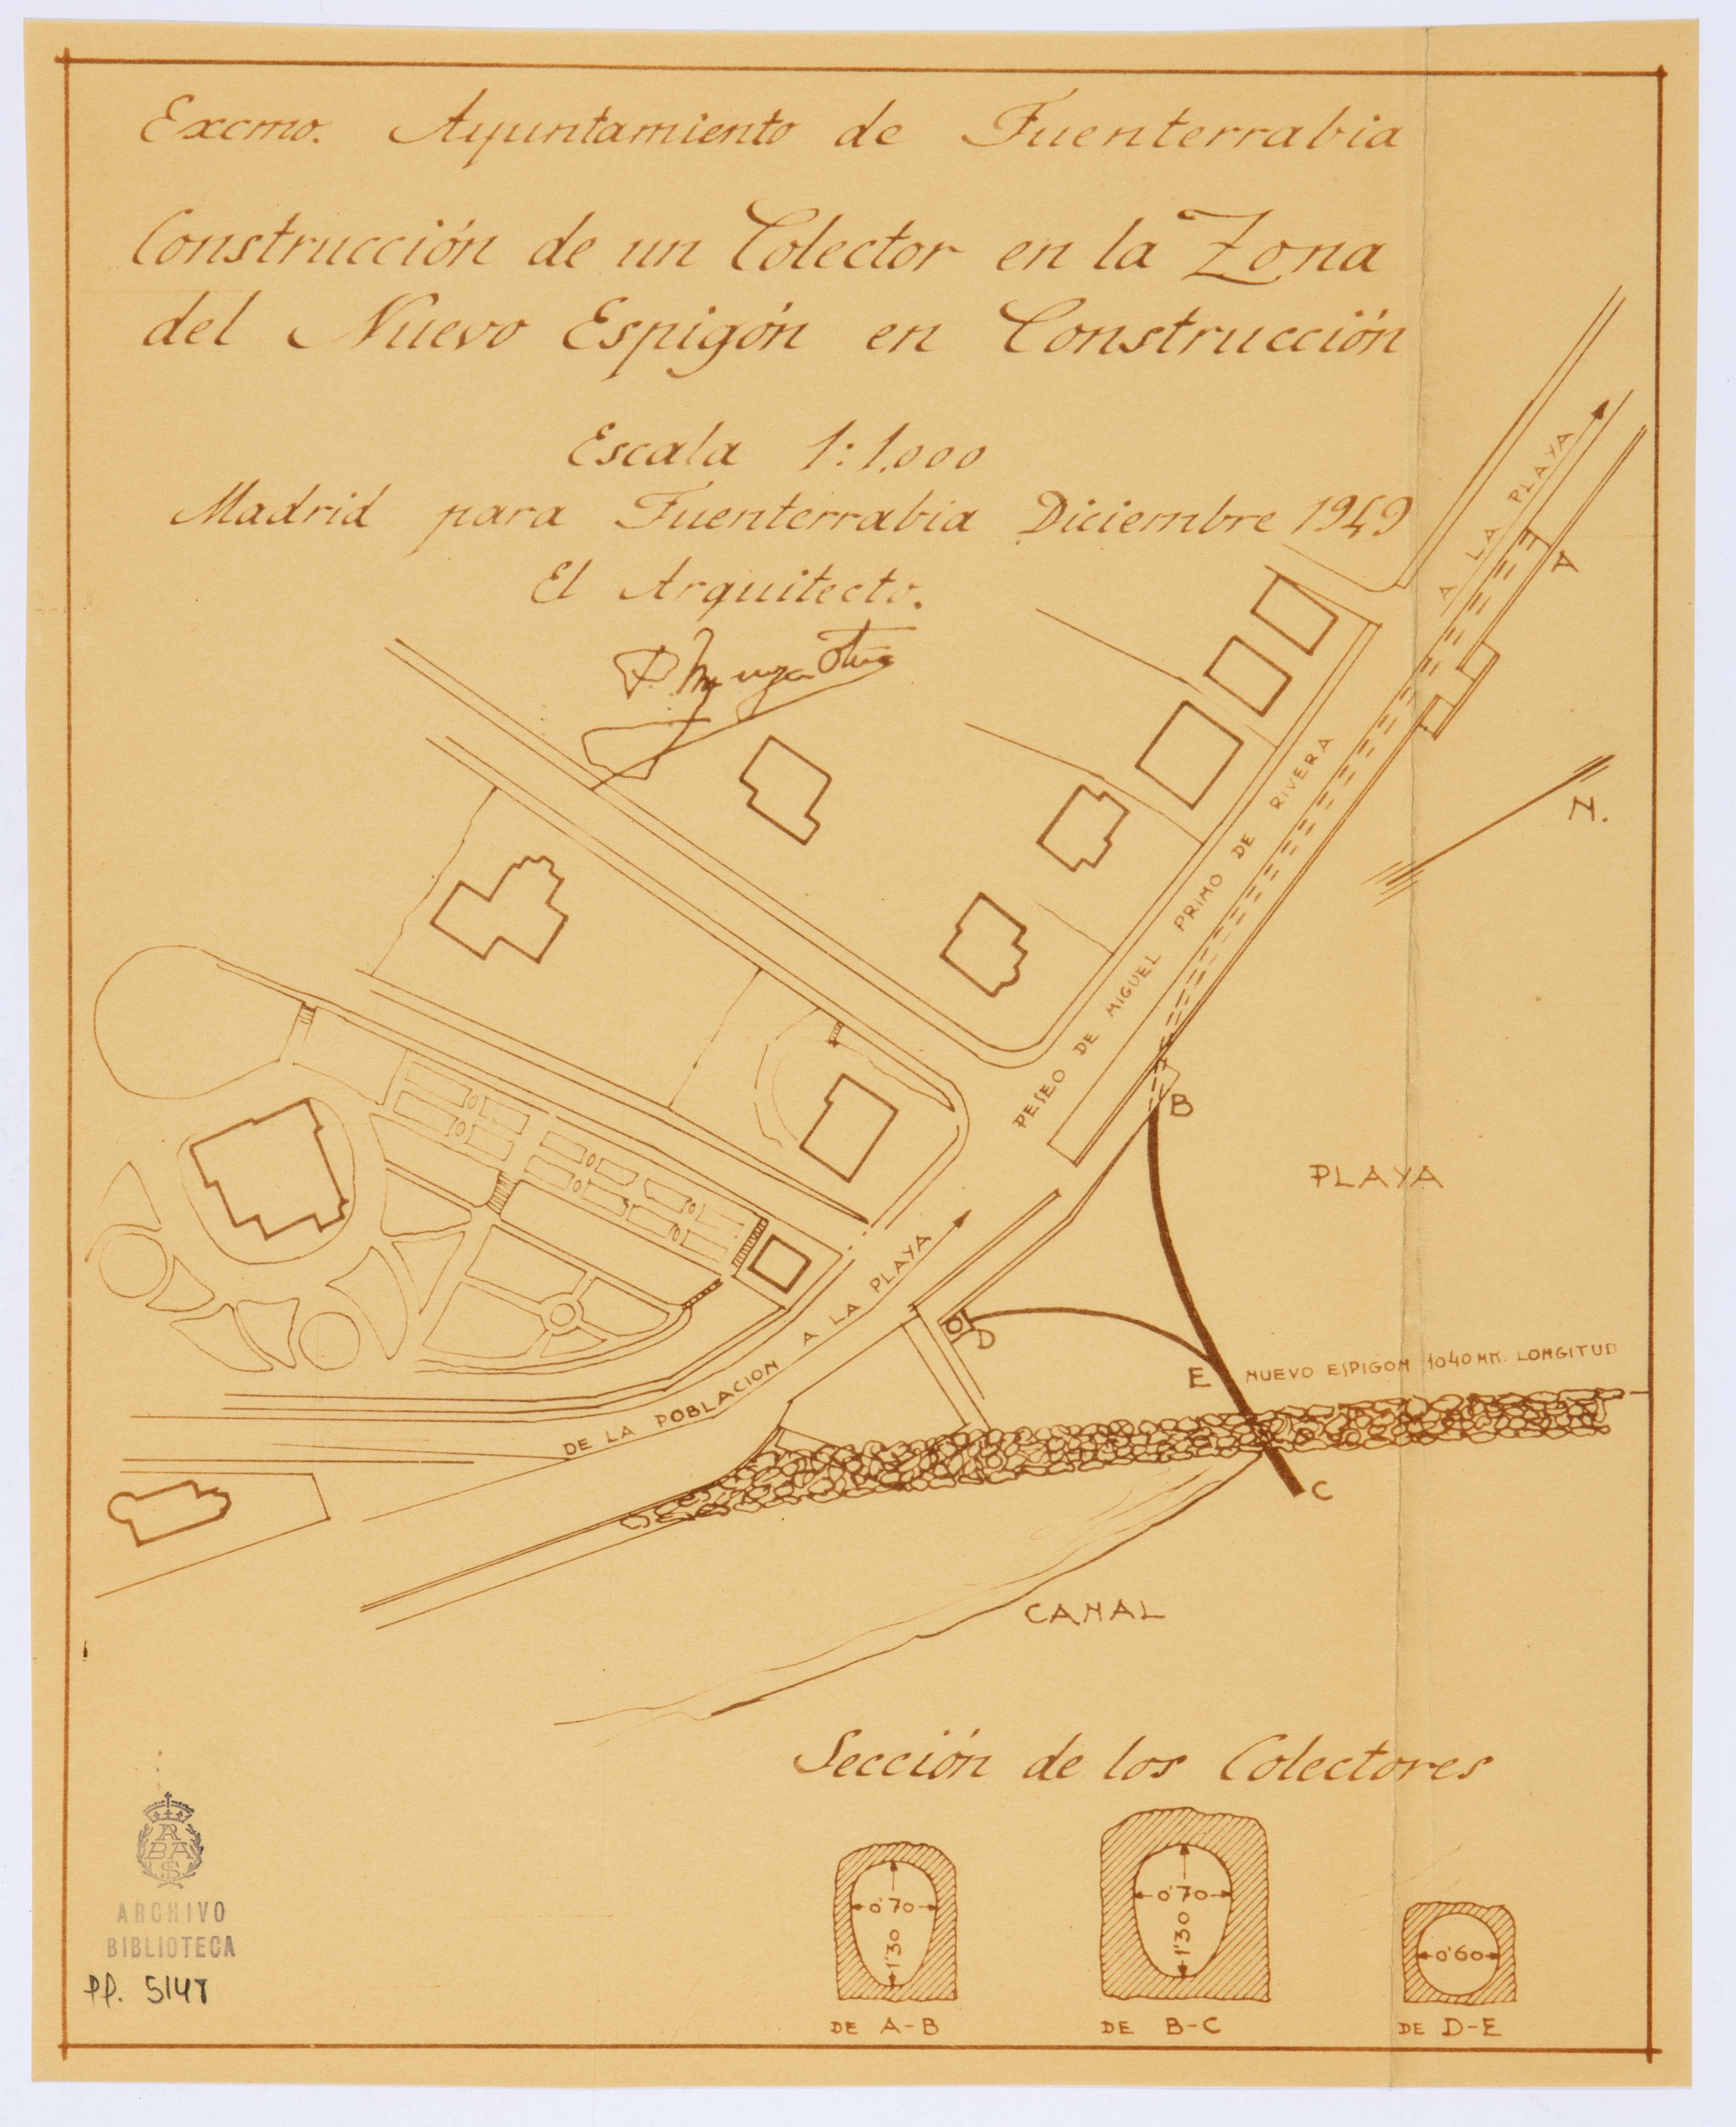 Excmo. Ayuntamiento de Fuenterrabia
Construcción de un Colector en la Zona
del Nuevo Espigón en Construcción
Escala 1:1.000
Madrid para Fuenterrabia Diciembre 1949
El Arquitecto.
A LA PLAYA
A
N.
PESEO DE MIGUEL PRIMO DE RIVERA
B
PLAYA
DE LA POBLACION A LA PLAYA
D
E
NUEVO ESPIGON 1040 MTS. LONGITUD
C
CANAL
Sección de los Colectores
0'70
1'30
DE A-B
0'70
1'30
DE B-C
0'60
DE D-E
RABAS
ARCHIVO
BIBLIOTECA